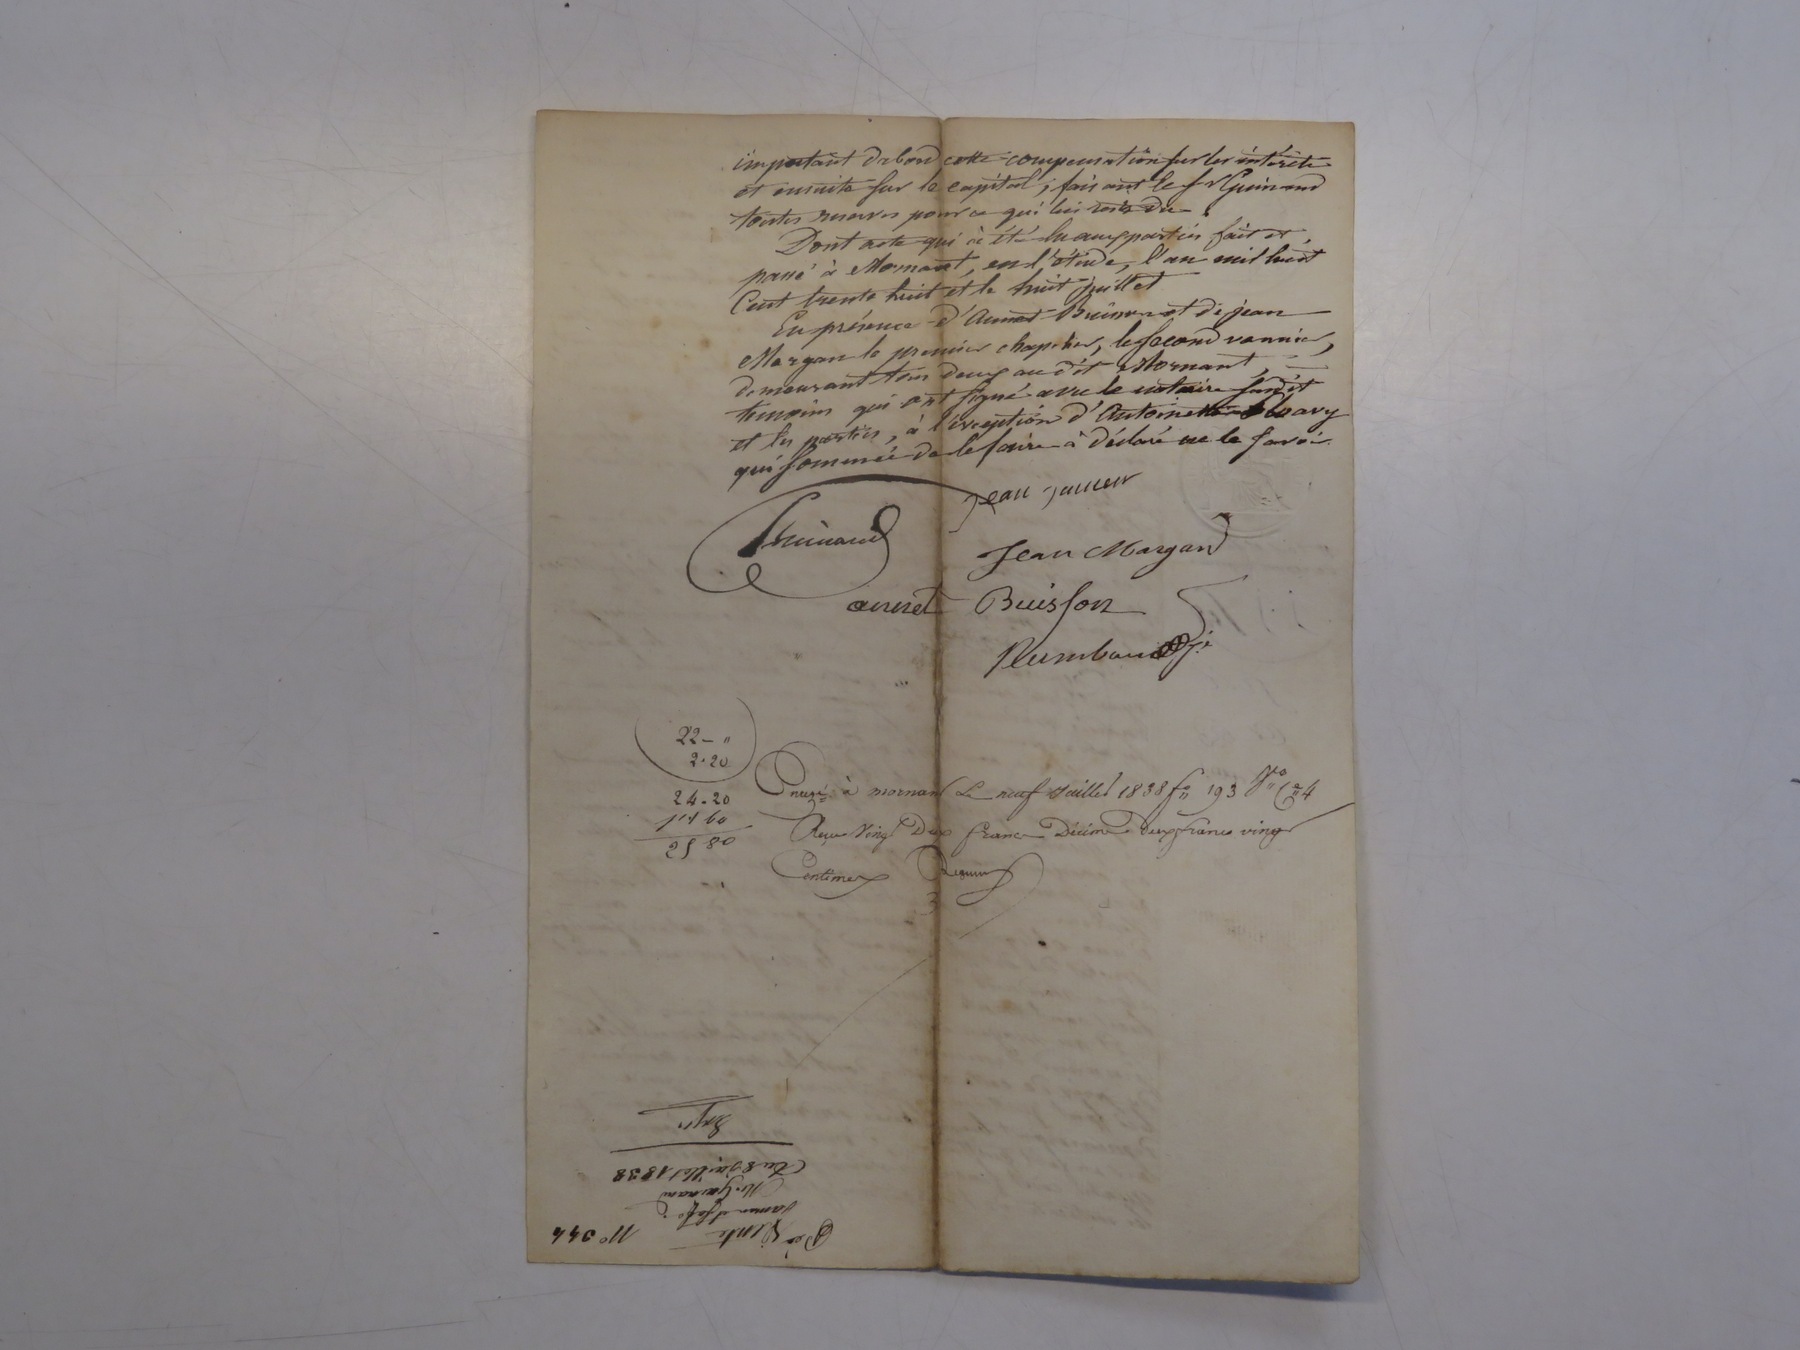 important d'abord cette compensation sur les intérêts
et ensuite sur le capital; faisant le sr Guinand
toutes reserves pour ce qui lui reste du.
Dont acte qui à été lu aux parties fait et
passé à Mornant, en l'étude, l'an mil huit
Cent trente huit et le huit juillet
En présence d'Annet Buisson et de jean
Morgan le premier chapelier, le second vannier,
demeurant tous deux au dit Mornant,
temoins qui ont signé avec le notaire susdit
et les parties, à l'exception d'Antoinette
qui sommée de le faire à déclaré ne le savoir.
jean
Guinand
Jean Morgand
annet Buisson
22 - "
2.20
24-20
1.60
25 80
à mornant Le neuf Juillet 1838 fo 193 Vo Ce 4
Reçu Vingt Deux francs Décime deux francs vingt
Centimes
3
No 344
Vente
Mr Guinand
Du 8 Juillet 1838